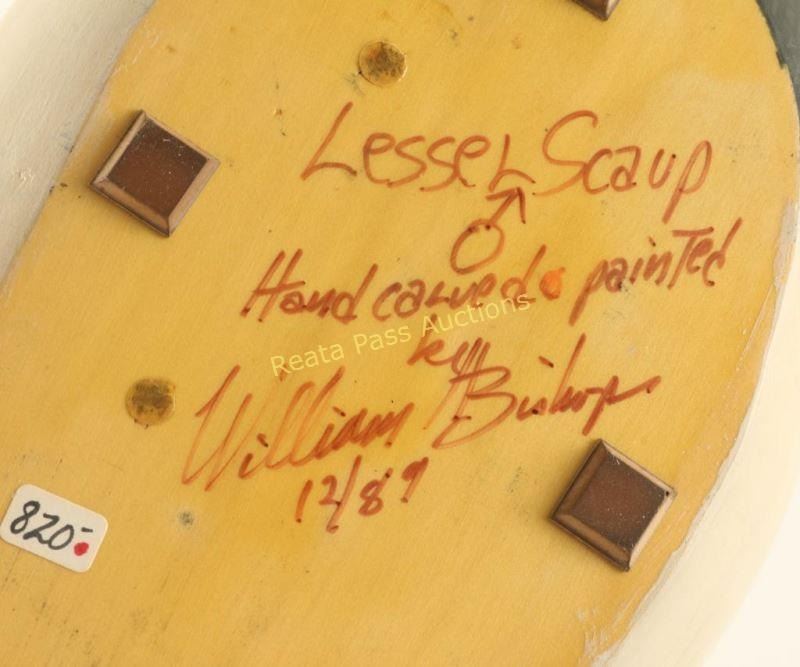 Lesser Scaup
♂
Hand carved • painted
by
Reata Pass Auctions
William Bishop
12/89
820-